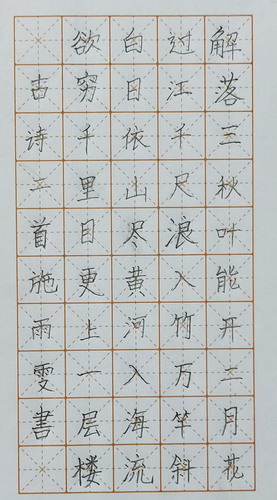 解落三秋叶能开二月花
过江千尺浪入竹万竿斜
白日依山尽黄河入海流
欲穷千里目更上一层楼
古诗二首施雨雯書